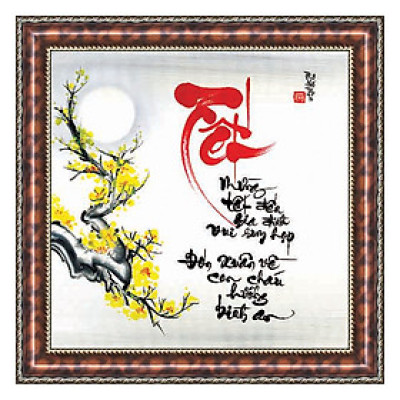 Tết
Mừng
tết đến
gia đình
vui sum họp
Đón xuân về
con cháu
hưởng
bình an